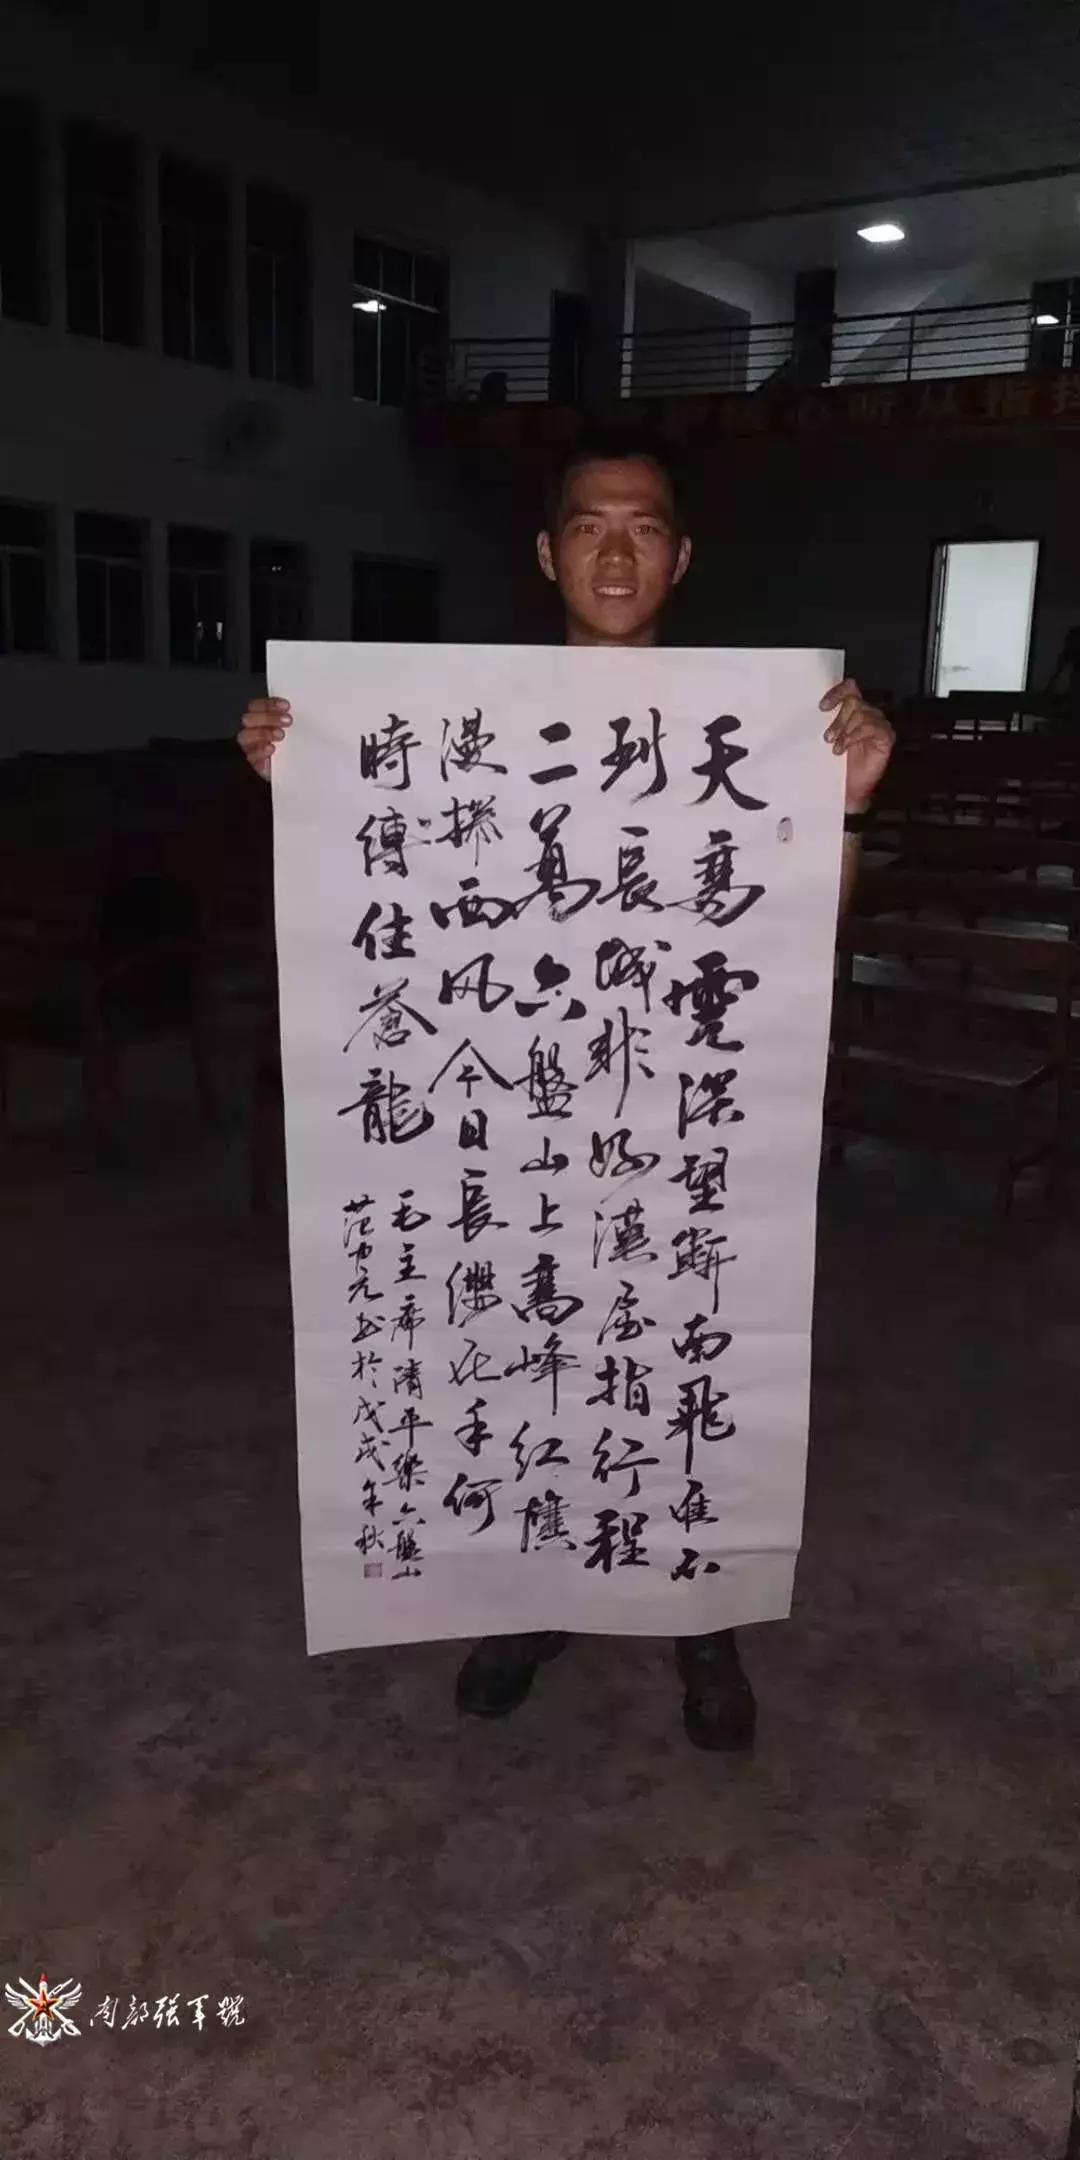 天高雲深望斷南飛雁不
到長城非好漢屈指行程
二萬六盤山上高峰紅旗
漫捲西风今日長纓在手何
時縛住蒼龍
毛主席清平樂六盤山
范中元书於戊戌年秋
心听从指挥
南部强军號